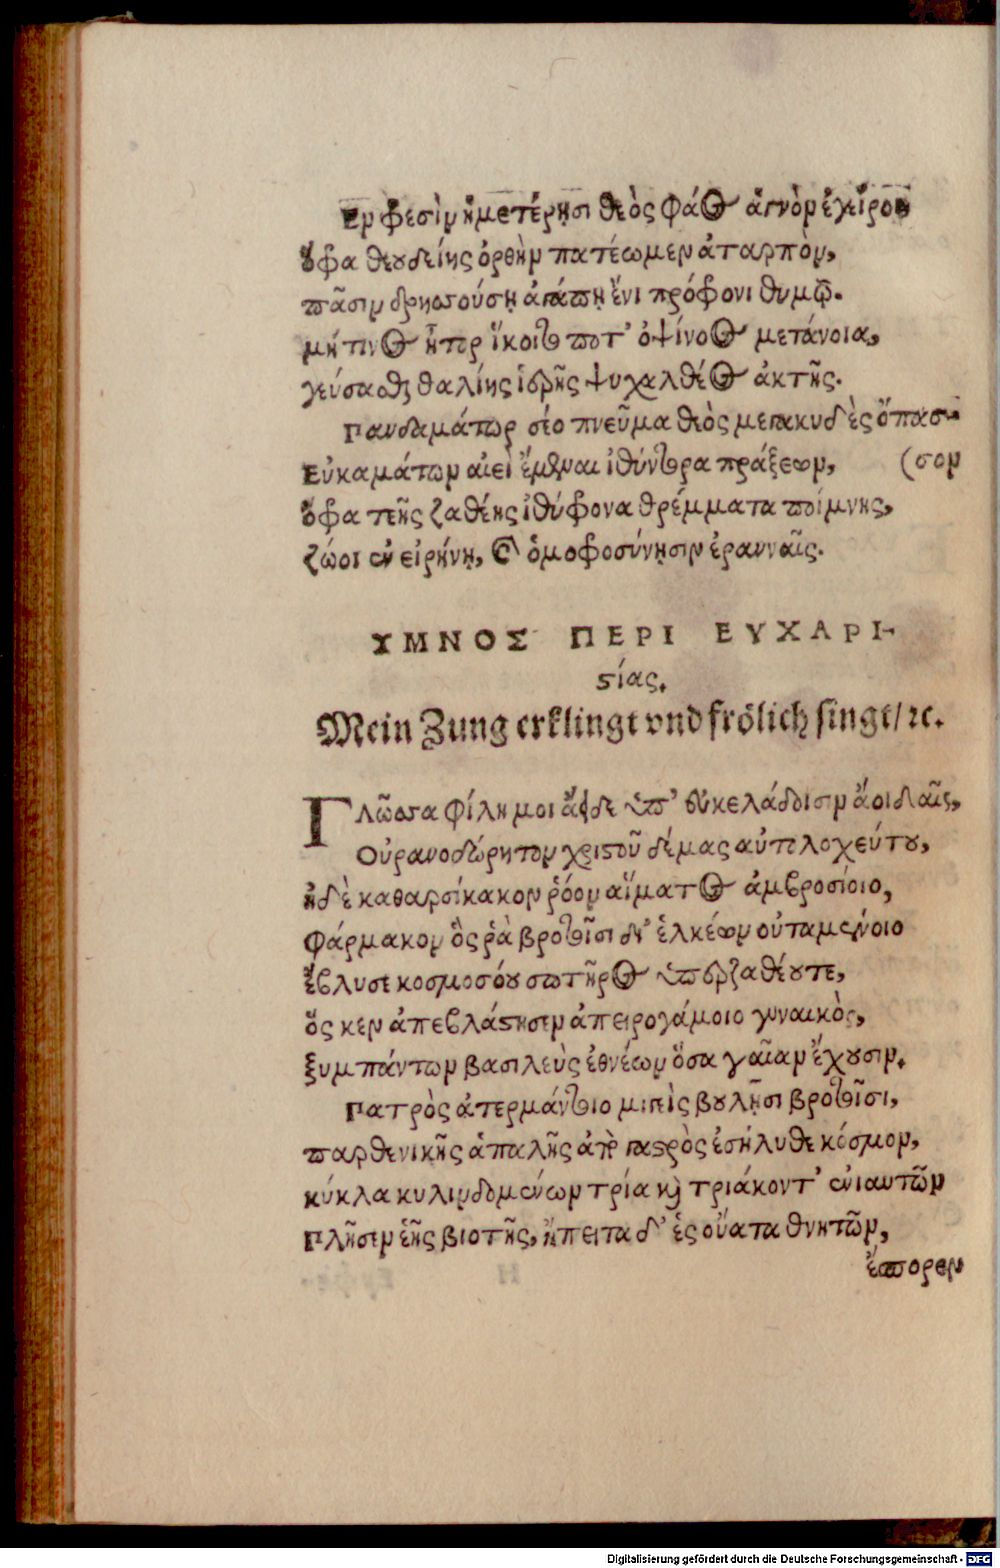 Ἐν φρεσὶν ἡμετέρῃσι θεὸς φάος ἁγνὸν ἐγείροις
ὄφρα θεουδείης ὀρθὴν πατέωμεν ἀταρπὸν,
πᾶσιν ἀπάτῃ ἔνι πρόφρονι θυμῷ.
μή τινος ἦτορ ἵκοιτο ποτ' ὀψίνοος μετάνοια,
γεύσασθαι θαλίης ἱερῆς ψυχαλθέος ἀκτῆς.
Πανδαμάτωρ σέο πνεῦμα θεὸς μεγακυδὲς ὄπασ-
Εὐκαμάτων αἰεὶ ἔμμεναι ἰθύντορα πράξεων, (σον
ὄφρα τεῆς ζαθέης ἰθύφρονα θρέμματα ποίμνης,
ζώοι ἐν εἰρήνῃ, καὶ ὁμοφροσύνῃσιν ἐρανναῖς.
ΥΜΝΟΣ ΠΕΡΙ ΕΥΧΑΡΙ-
στίας.
Mein Zung erklingt vnd frölich singt/ ꝛc.
Γλῶσσα φίλη μοι ἄειδε ὑπ' εὐκελάδοισιν ἀοιδαῖς,
Οὐρανοδώρητον χριστοῦ δέμας αὐτολοχεύτου,
ἠδὲ καθαρσίκακον ῥόον αἵματος ἀμβροσίοιο,
φάρμακον ὅς ῥὰ βροτοῖσι δι' ἑλκέων οὐταμένοιο
ἔβλυσε κοσμοσόου σωτῆρος ὑπερζαθέου τε,
ὅς κεν ἀπεβλάστησεν ἀπειρογάμοιο γυναικὸς,
ξυμπάντων βασιλεὺς ἐθνέων ὅσα γαῖαν ἔχουσιν.
Πατρὸς ἀτερμάντοιο μιγεὶς βουλῇσι βροτοῖσι,
παρθενικῆς ἁπαλῆς ἀπὸ γαστρὸς ἐσήλυθε κόσμον,
κύκλα κυλινδομένων τρία καὶ τριάκοντ' ἐνιαυτῶν
Πλῆσεν ἑῆς βιοτῆς, ἤπειτα δ' ἐς οὔατα θνητῶν,
ἔσπορεν
Digitalisierung gefördert durch die Deutsche Forschungsgemeinschaft - DFG